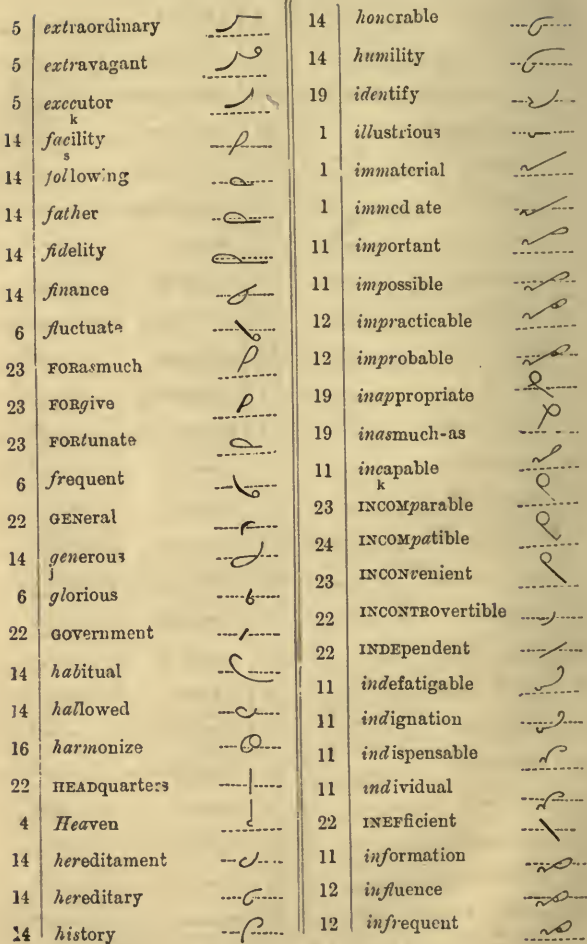 5 extraordinary
5 extravagant
5 executor
k
14 facility
s
14 following
14 father
14 fidelity
14 finance
6 fluctuate
23 FORasmuch
23 FORgive
23 FORtunate
6 frequent
22 GENeral
14 generous
j
6 glorious
22 GOVernment
14 habitual
14 hallowed
16 harmonize
22 HEADquarters
4 Heaven
14 hereditament
14 hereditary
14 history
14 honorable
14 humility
19 identify
1 illustrious
1 immaterial
1 immed ate
11 important
11 impossible
12 impracticable
12 improbable
19 inappropriate
19 inasmuch-as
11 incapable
k
23 INCOMparable
24 INCOMpatible
23 INCONvenient
22 INCONTROvertible
22 INDEpendent
11 indefatigable
11 indignation
11 indispensable
11 individual
22 INEFficient
11 information
12 influence
12 infrequent